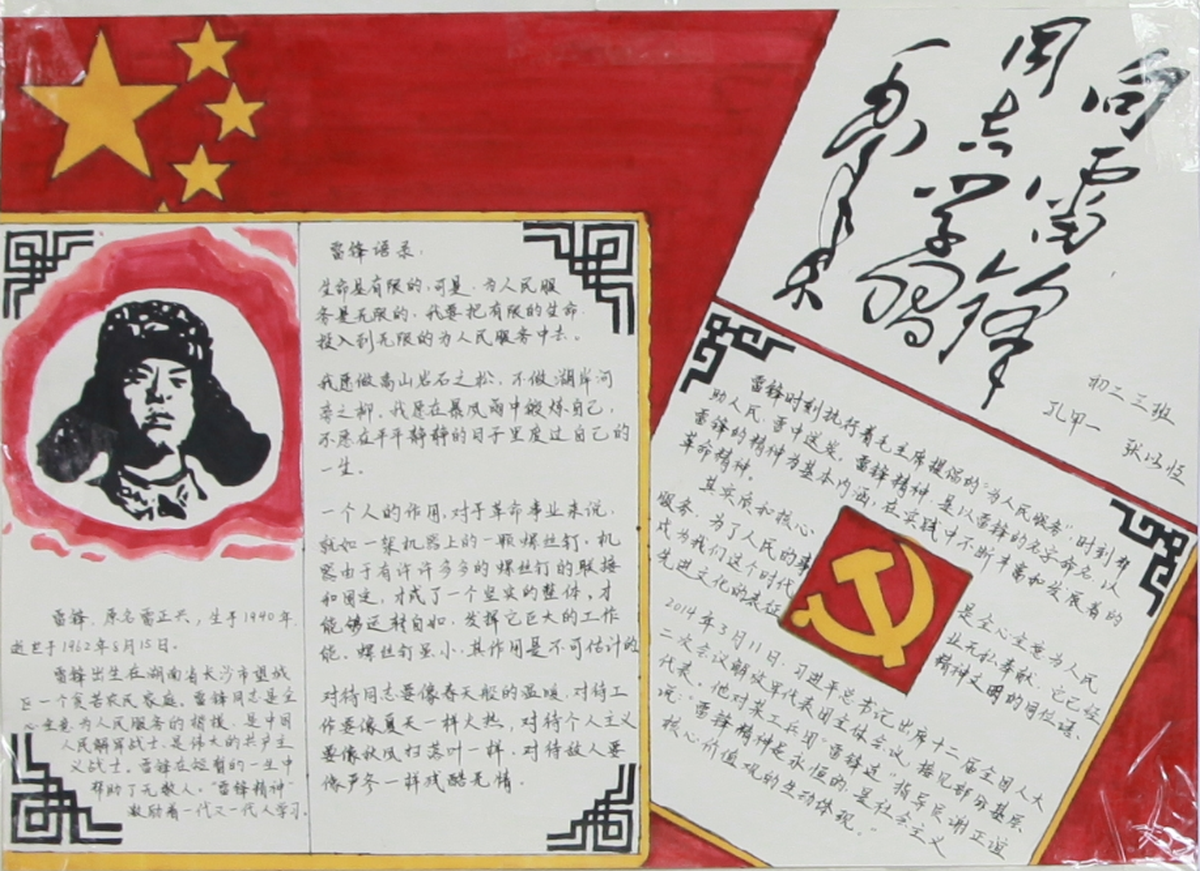 向雷锋
同志学习
毛泽东
初二三班
孔甲一 张以恒
雷锋语录：
生命是有限的，可是，为人民服
务是无限的，我要把有限的生命，
投入到无限的为人民服务中去。
我愿做高山岩石之松，不做湖岸河
旁之柳，我愿在暴风雨中锻炼自己，
不愿在平平静静的日子里度过自己的
一生。
一个人的作用，对于革命事业来说，
就如一架机器上的一颗螺丝钉，机
器由于有许许多多的螺丝钉的联接
和固定，才成了一个坚实的整体，才
能够运转自如，发挥它巨大的工作
能。螺丝钉虽小，其作用是不可估计的
对待同志要像春天般的温暖，对待工
作要像夏天一样火热，对待个人主义
要像秋风扫落叶一样，对待敌人要
像严冬一样残酷无情。
雷锋，原名雷正兴，生于1940年，
逝世于1962年8月15日。
雷锋出生在湖南省长沙市望城
区一个贫苦农民家庭。雷锋同志是全
心全意为人民服务的楷模，是中国
人民解放军战士，是伟大的共产主
义战士。雷锋在短暂的一生中
帮助了无数人。“雷锋精神”
激励着一代又一代人学习。
雷锋时刻执行着毛主席提倡的“为人民服务”，时刻帮
助人民，雪中送炭。雷锋精神，是以雷锋的名字命名，以
雷锋的精神为基本内涵，在实践中不断丰富和发展着的
革命精神。
其实质和核心是全心全意为人民
服务，为了人民的事业无私奉献，它已经
成为我们这个时代精神文明的同位语、
先进文化的表征
2014年3月11日，习进平总书记出席十二届全国人大
二次会议解放军代表团主体会议，接见部分基层
代表。他对某工兵团“雷锋连”指导员谢正谊
说：“雷锋精神是永恒的，是社会主义
核心价值观的生动体现。”